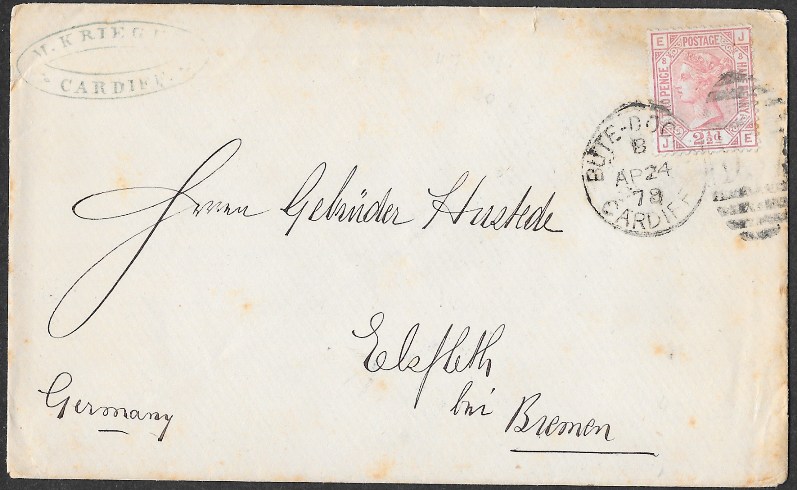 M. KRIEG
CARDIFF.
E POSTAGE J
J 2½d E
BUTE-DOC
B
AP 24
78
CARDIFF
Herren Gebrüder Hustede
Elsfleth
bei
Bremen
Germany